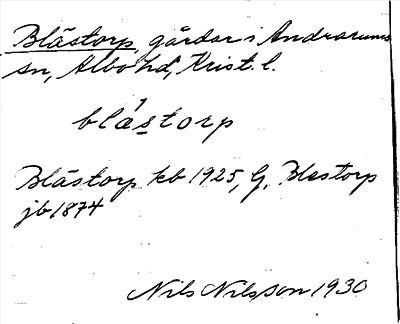 Blästorp, gårdar i Andrarums
sn, Albo hd, Krist. l.
blá̱storp
Blästorp kb 1925, G. Blestorp
jb 1874
Nils Nilsson 1930